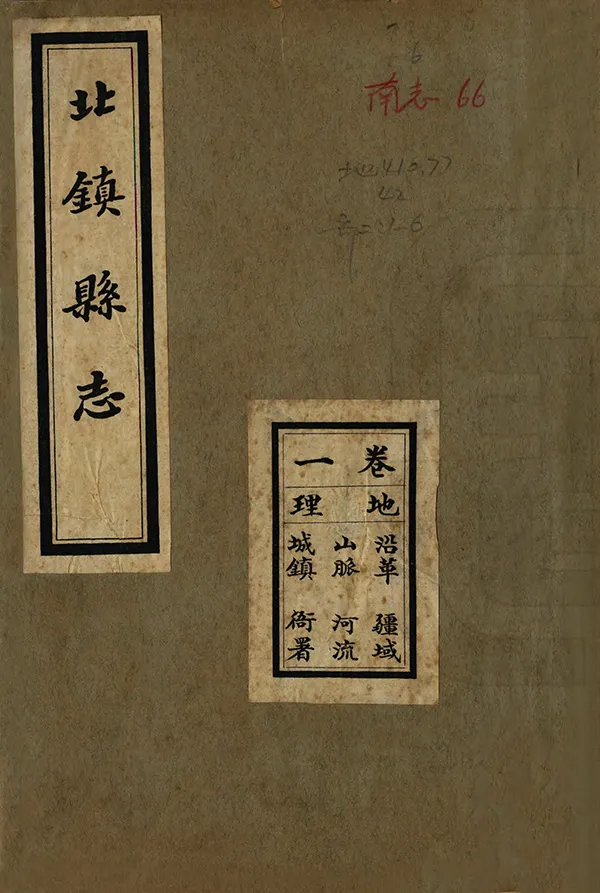 北鎮縣志
南志 66
地410.77
42
卷一
地理
沿革 疆域
山脈 河流
城鎮 衙署